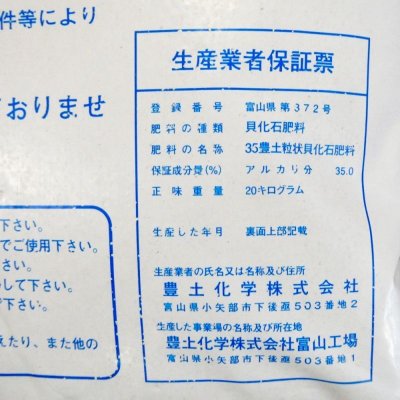 件等により
ておりませ
生産業者保証票
登録番号 富山県第372号
肥料の種類 貝化石肥料
肥料の名称 35豊土粒状貝化石肥料
保証成分量(%) アルカリ分 35.0
正味重量 20キログラム
生産した年月 裏面上部記載
生産業者の氏名又は名称及び住所
豊土化学株式会社
富山県小矢部市下後亟503番地2
生産した事業場の名称及び所在地
豊土化学株式会社富山工場
富山県小矢部市下後亟503番地1
下さい。
でご使用下さい。
さい。
して下さい。
下さい。
えたり、また他の